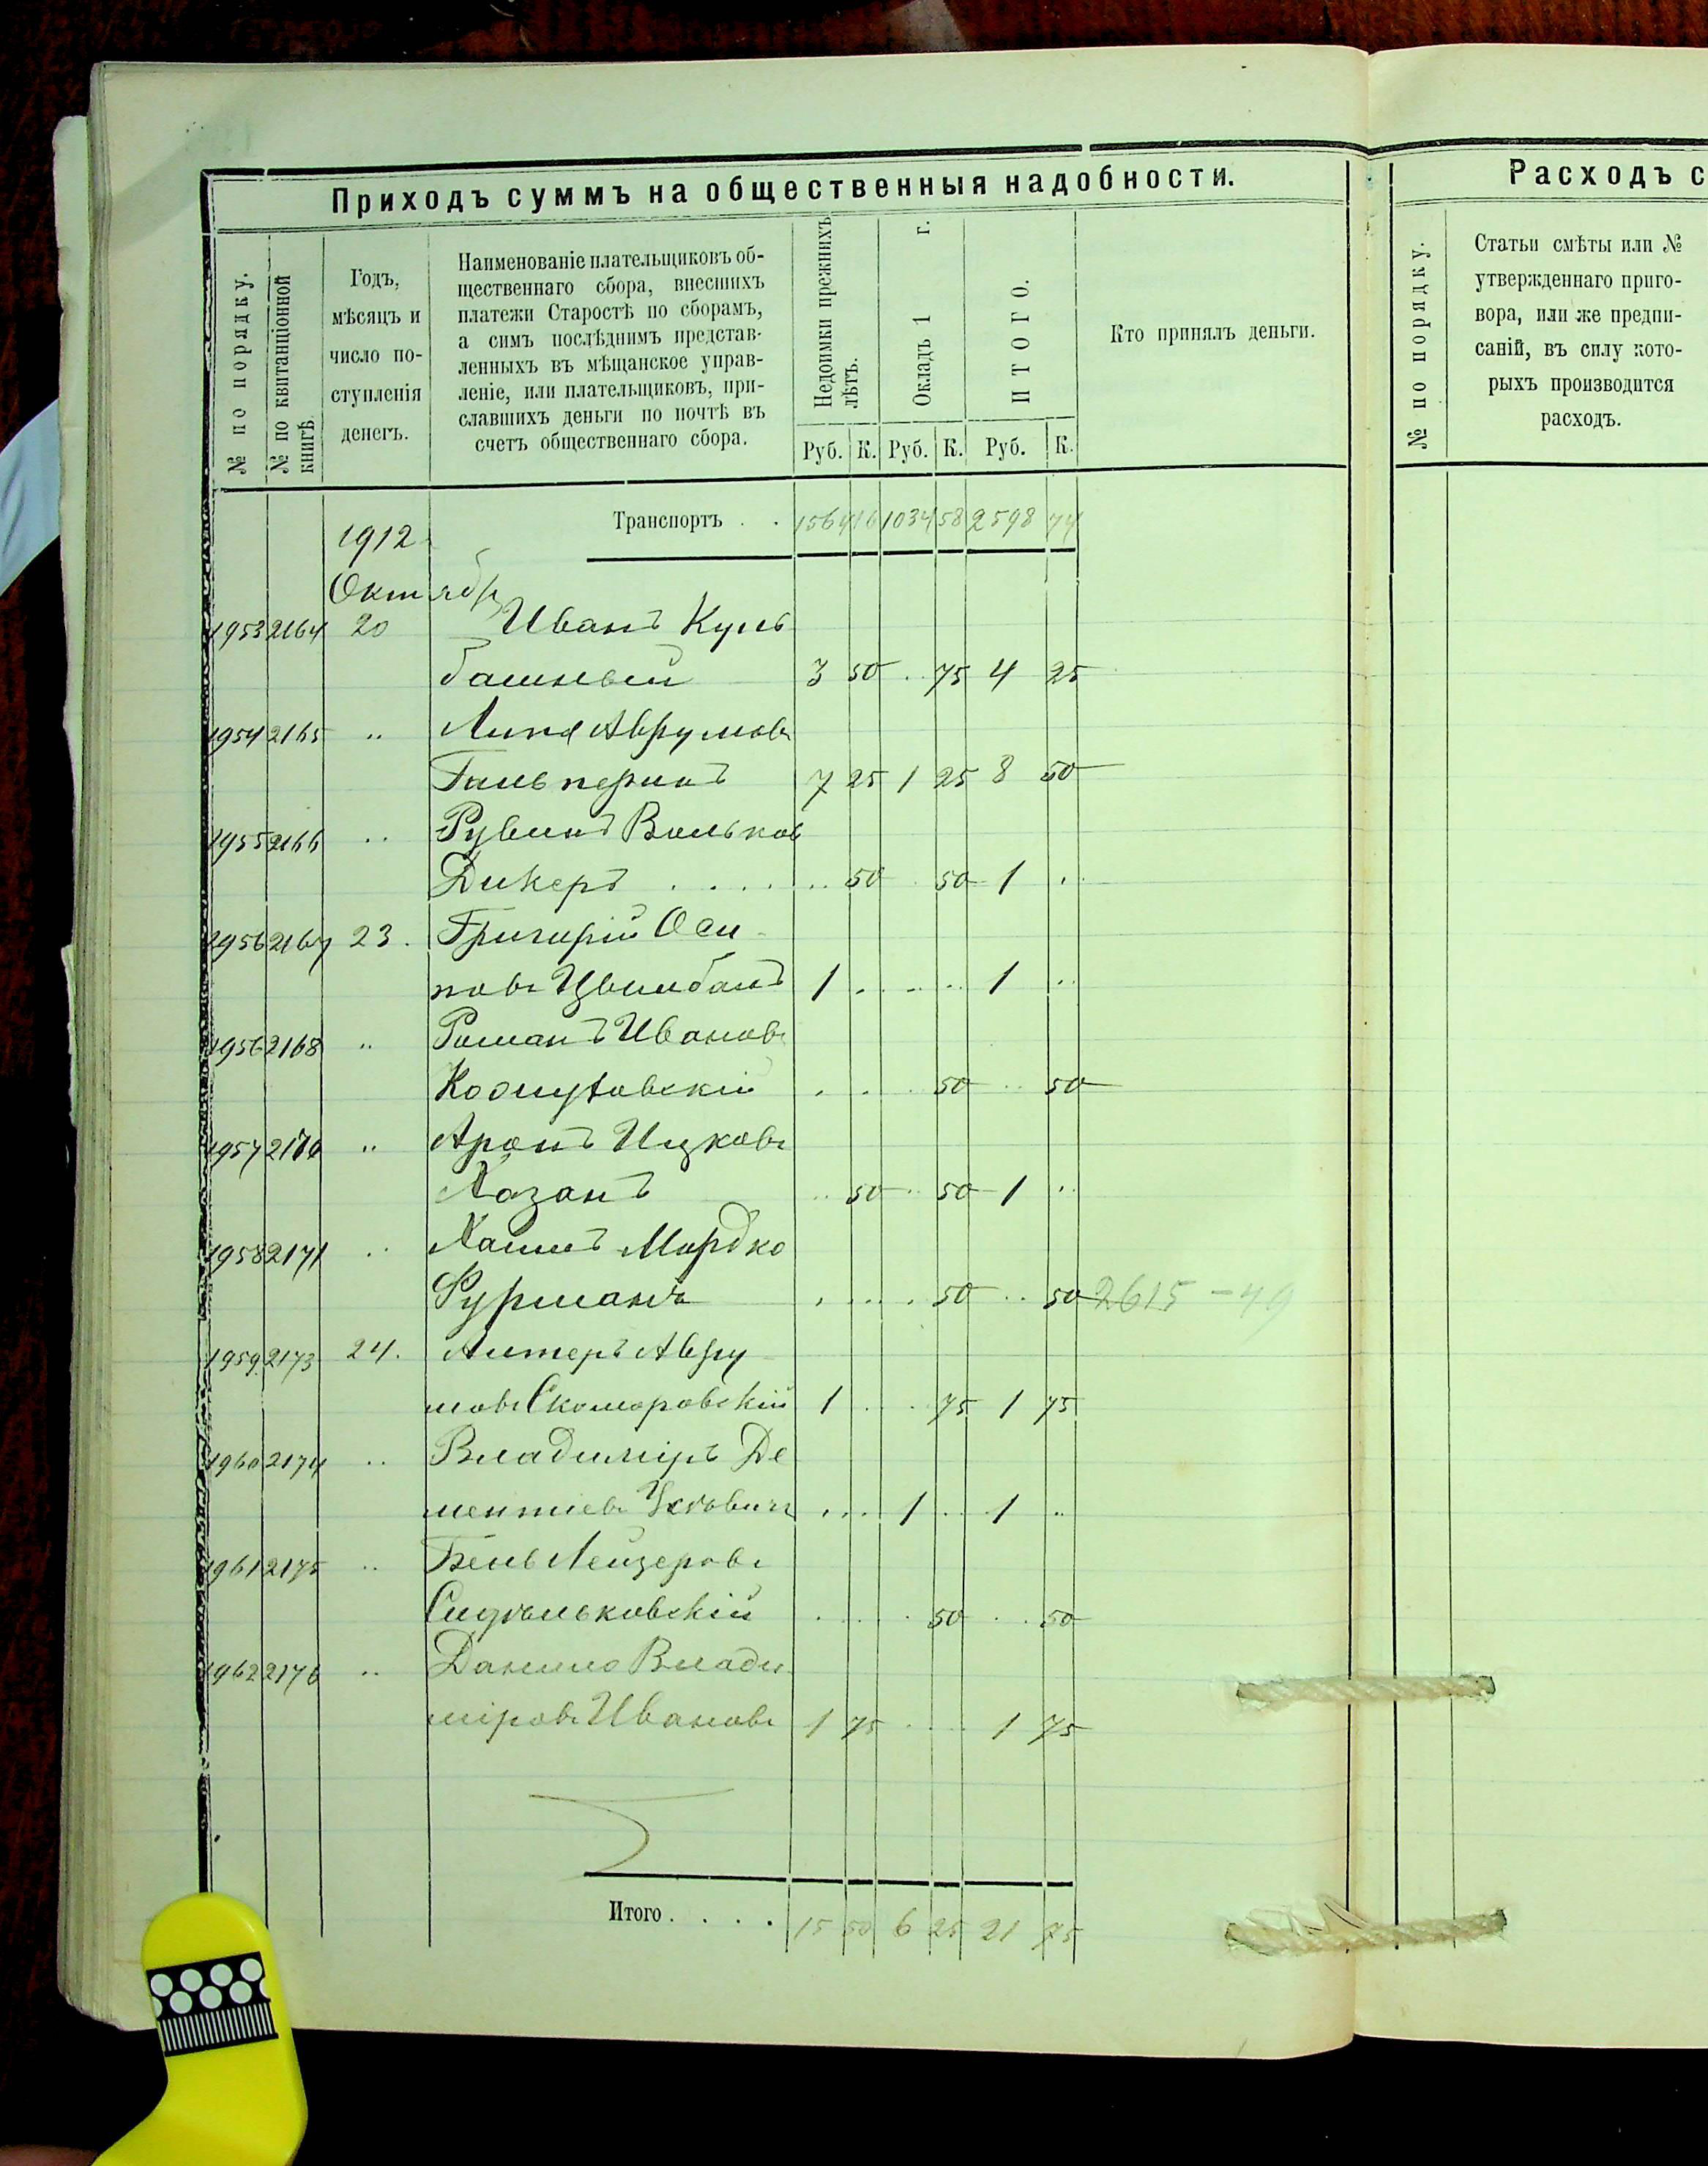 Приходъ суммъ на общественныя надобности.
№ по порядку.
№ по квитанціонной книгѣ
Годъ, мѣсяцъ и число поступленія денегъ.
Наименованіе плательщиковъ об-
щественнаго сбора, внесшихъ
платежи Старостѣ по сборамъ,
а симъ послѣднимъ представ-
ленныхъ въ мѣщанское управ-
леніе, или плательщиковъ, при-
славшихъ деньги по почтѣ въ
счетъ общественнаго сбора.
Недоимки прежнихъ лѣтъ.
Окладъ 1 г.
ИТОГО.
Кто принялъ деньги.
Руб. К. Руб. К. Руб. К.
Транспортъ . . 1564 16 1034 58 2598 74
1912
Октябр
1953 2164 20 Иванъ Куль
башный 3 50 . 75 4 25
1954 2165 " Липа Аврумовъ
Гальперинъ 7 25 1 25 8 50
1955 2166 " Рувинъ Вольков
Дикеръ . . . . . . 50 . 50 1 "
1956 2167 23. Григорій Оси-
повъ Цвимбалъ 1 . . . . 1 "
1956 2168 " Романъ Ивановъ
. . . 50 . . 50
1957 2170 " Аронъ Ицковъ
Хазанъ . . 50 . . 50 1 "
1958 2171 " Хаимъ Мордко
Фурманъ . . . . 50 . . 50 2615 - 49
1959 2173 24. Алтеръ Авру
мовъ Скоморовскій 1 . . 75 1 75
1960 2174 " Владиміръ Де
ментіевъ . . . 1 . . 1 "
1961 2175 " Бень Лейзеровъ
. . . . 50 . . 50
1962 2176 " Данило Влади
міровъ Ивановъ 1 75 . . . 1 75
Итого . . . . 15 50 6 25 21 75
Расходъ с
№ по порядку.
Статьи смѣты или №
утвержденнаго приго-
вора, или же предпи-
саній, въ силу кото-
рыхъ производится
расходъ.